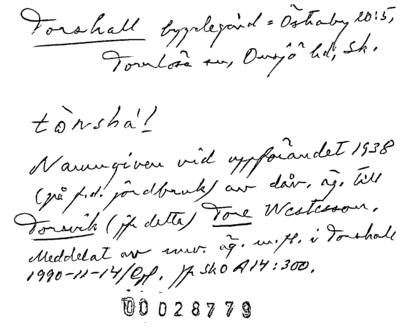 Torshall byggdegård = Östraby 20:5,
Torrlösa sn, Onsjö hd, Sk.
tòrshá'l
Namngiven vid uppförandet 1938
(på f.d. jordbruk) av dåv. äg. till
Torsvik (jfr detta) Tore Westesson.
Meddelat av nuv. äg. m.fl. i Torshall
1990-11-14/ jfr SkO A14:300.
00028779